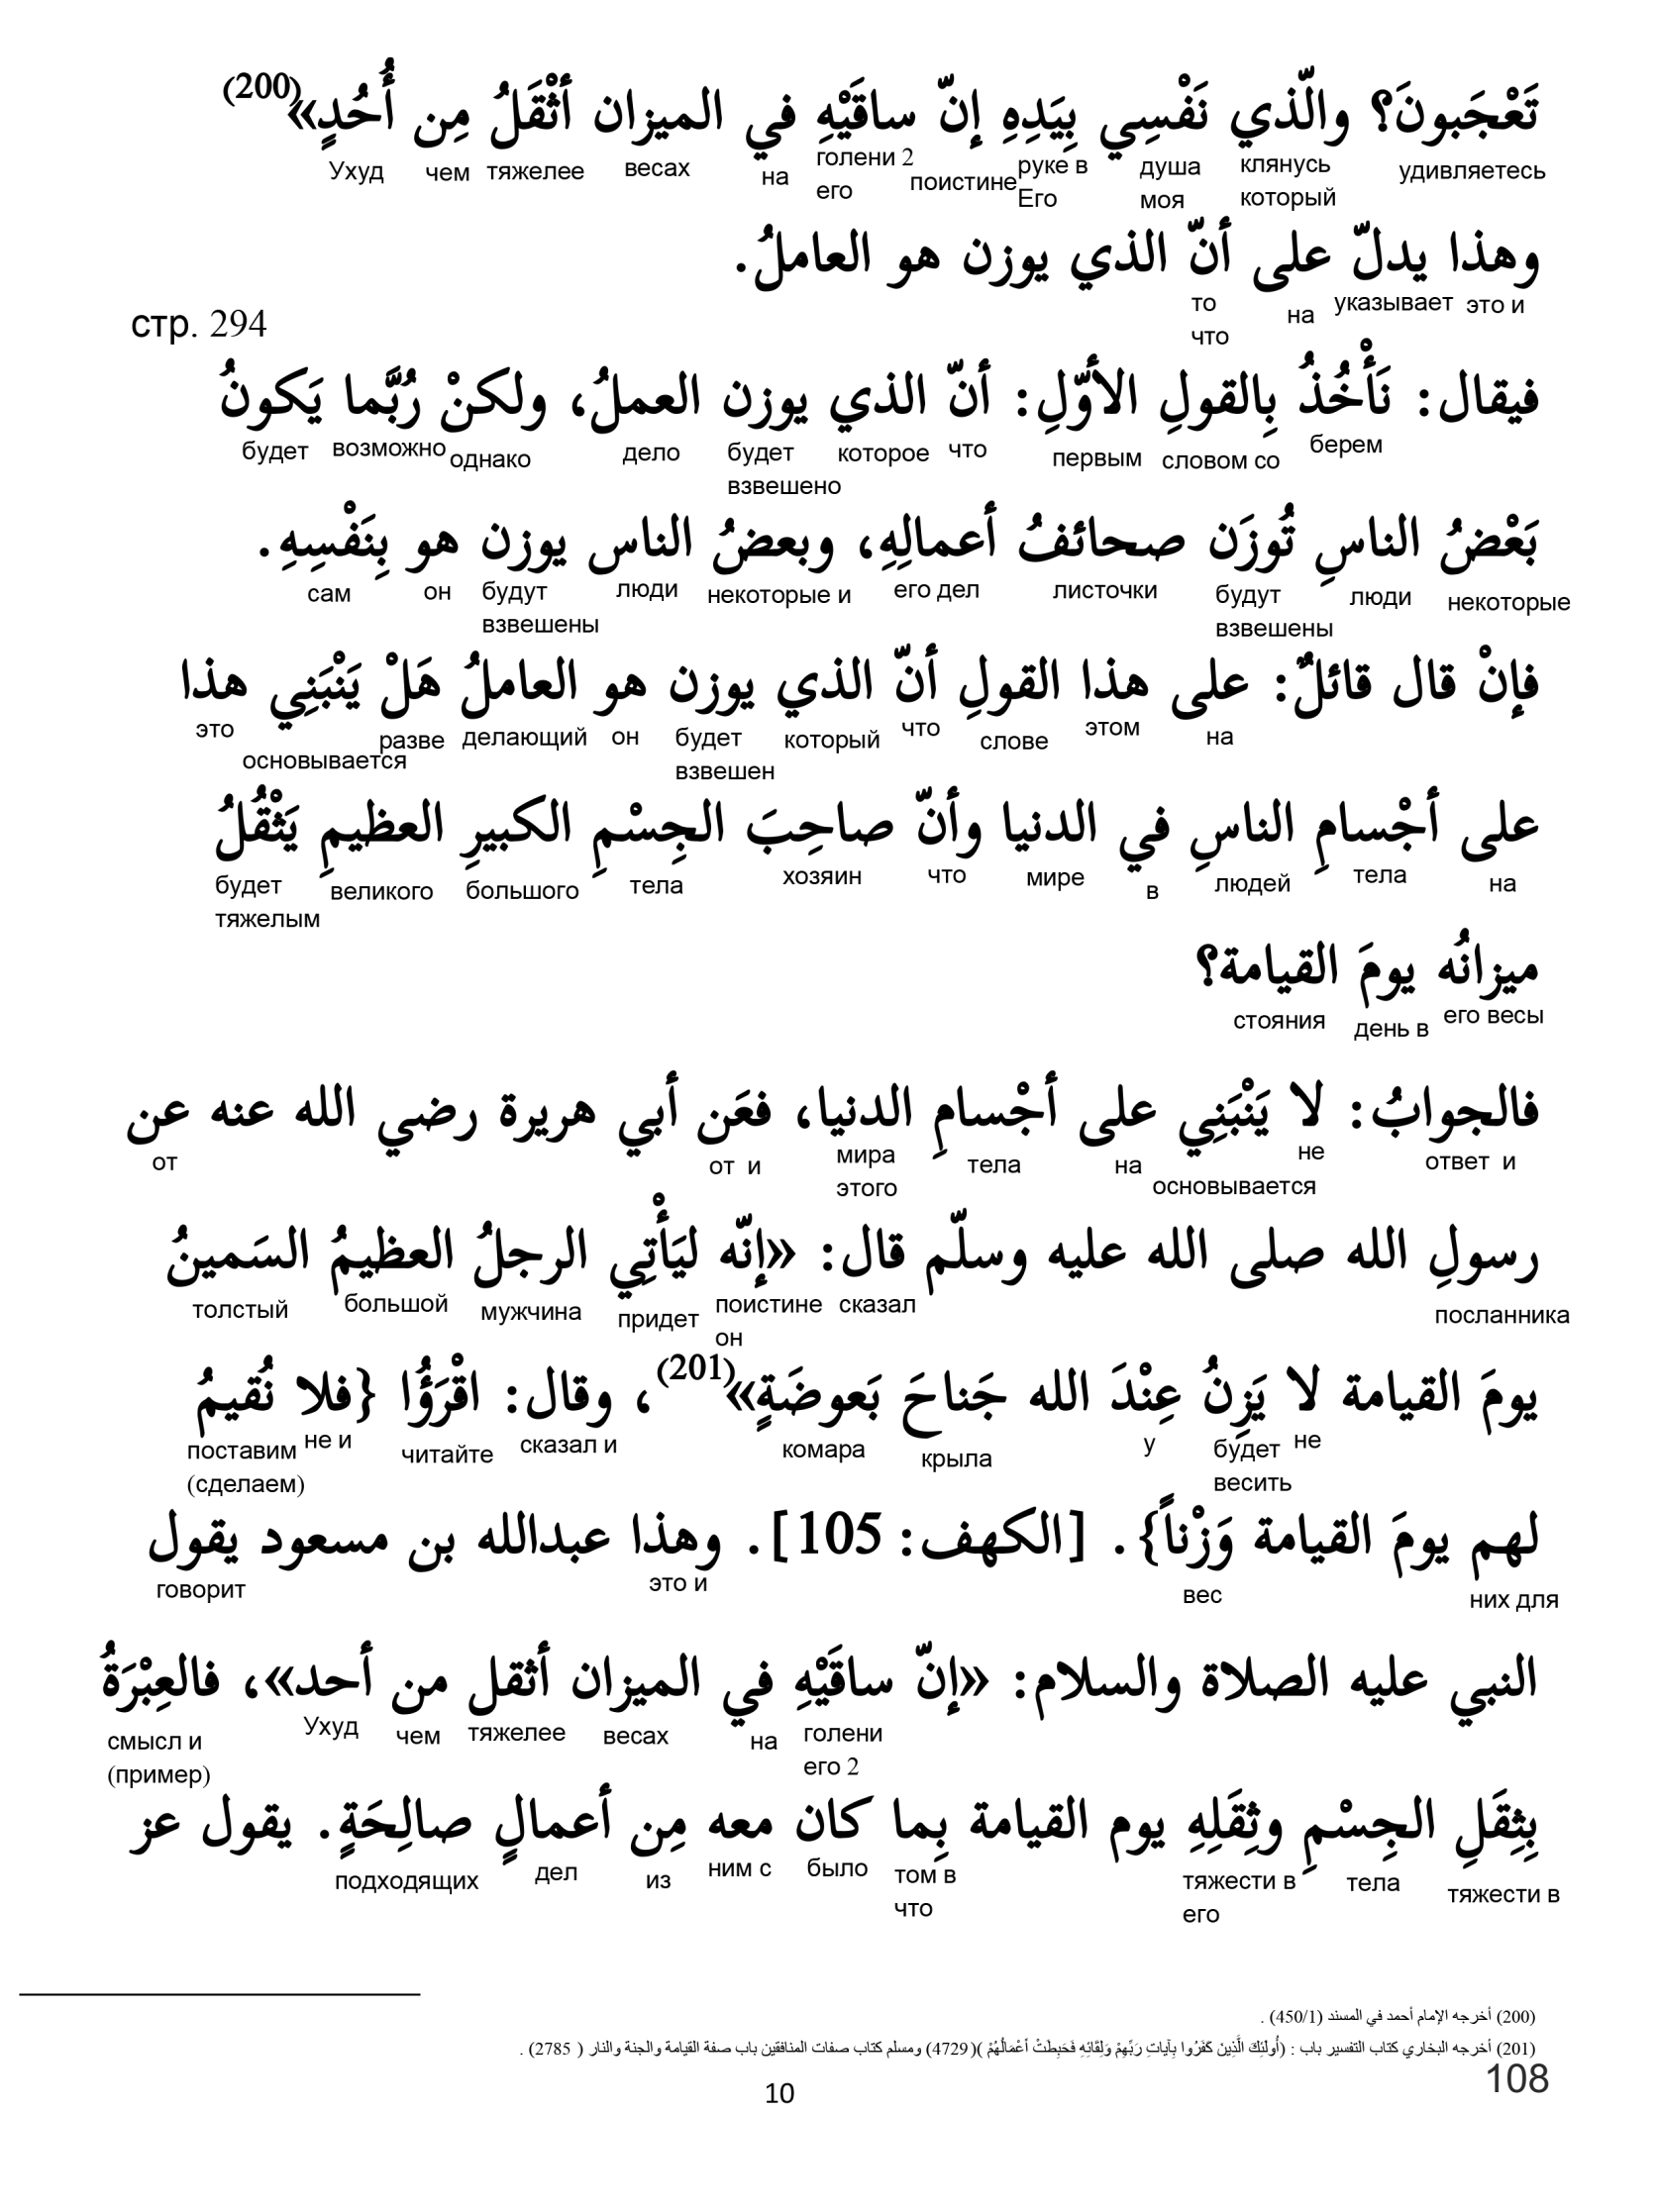 تَعْجَبونَ؟ والّذي نَفْسِي بِيَدِهِ إنّ ساقَيْهِ في الميزان أثْقَلُ مِن أُحُدٍ»(200)
Ухуд чем тяжелее весах на голени 2 поистине руке в душа клянусь удивляетесь
его Его моя который
وهذا يدلّ على أنّ الذي يوزن هو العاملُ.
то на указывает это и
что
стр. 294
فيقال: نَأْخُذُ بِالقولِ الأوّلِ: أنّ الذي يوزن العملُ، ولكنْ رُبَّما يَكونُ
будет возможно однако дело будет которое что первым словом со берем
взвешено
بَعْضُ الناسِ تُوزَن صحائفُ أعمالِهِ، وبعضُ الناس يوزن هو بِنَفْسِهِ.
сам он будут люди некоторые и его дел листочки будут люди некоторые
взвешены взвешены
فإنْ قال قائلٌ: على هذا القولِ أنّ الذي يوزن هو العاملُ هَلْ يَنْبَنِي هذا
это основывается разве делающий он будет который что слове этом на
взвешен
على أجْسامِ الناسِ في الدنيا وأنّ صاحِبَ الجِسْمِ الكبيرِ العظيمِ يَثْقُلُ
будет великого большого тела хозяин что мире в людей тела на
тяжелым
ميزانُه يومَ القيامة؟
стояния день в его весы
فالجوابُ: لا يَنْبَنِي على أجْسامِ الدنيا، فعَن أبي هريرة رضي الله عنه عن
от от и мира тела на основывается не ответ и
этого
رسولِ الله صلى الله عليه وسلّم قال: «إنّه ليَأْتِي الرجلُ العظيمُ السَمينُ
толстый большой мужчина придет поистине сказал посланника
он
يومَ القيامة لا يَزِنُ عِنْدَ الله جَناحَ بَعوضَةٍ»(201)، وقال: اقْرَؤُا {فلا نُقيمُ
поставим не и читайте сказал и комара крыла у будет не
(сделаем) весить
لهم يومَ القيامة وَزْناً}. [الكهف: 105]. وهذا عبدالله بن مسعود يقول
говорит это и вес них для
النبي عليه الصلاة والسلام: «إنّ ساقَيْهِ في الميزان أثقل من أحد»، فالعِبْرَةُ
смысл и Ухуд чем тяжелее весах на голени
(пример) его 2
بِثِقَلِ الجِسْمِ وثِقَلِهِ يوم القيامة بِما كان معه مِن أعمالٍ صالِحَةٍ. يقول عز
подходящих дел из ним с было том в тяжести в тела тяжести в
что его
(200) أخرجه الإمام أحمد في المسند (450/1) .
(201) أخرجه البخاري كتاب التفسير باب : (أُولَئِكَ الَّذِينَ كَفَرُوا بِآيَاتِ رَبِّهِمْ وَلِقَائِهِ فَحَبِطَتْ أَعْمَالُهُمْ )(4729) ومسلم كتاب صفات المنافقين باب صفة القيامة والجنة والنار ( 2785) .
108
10